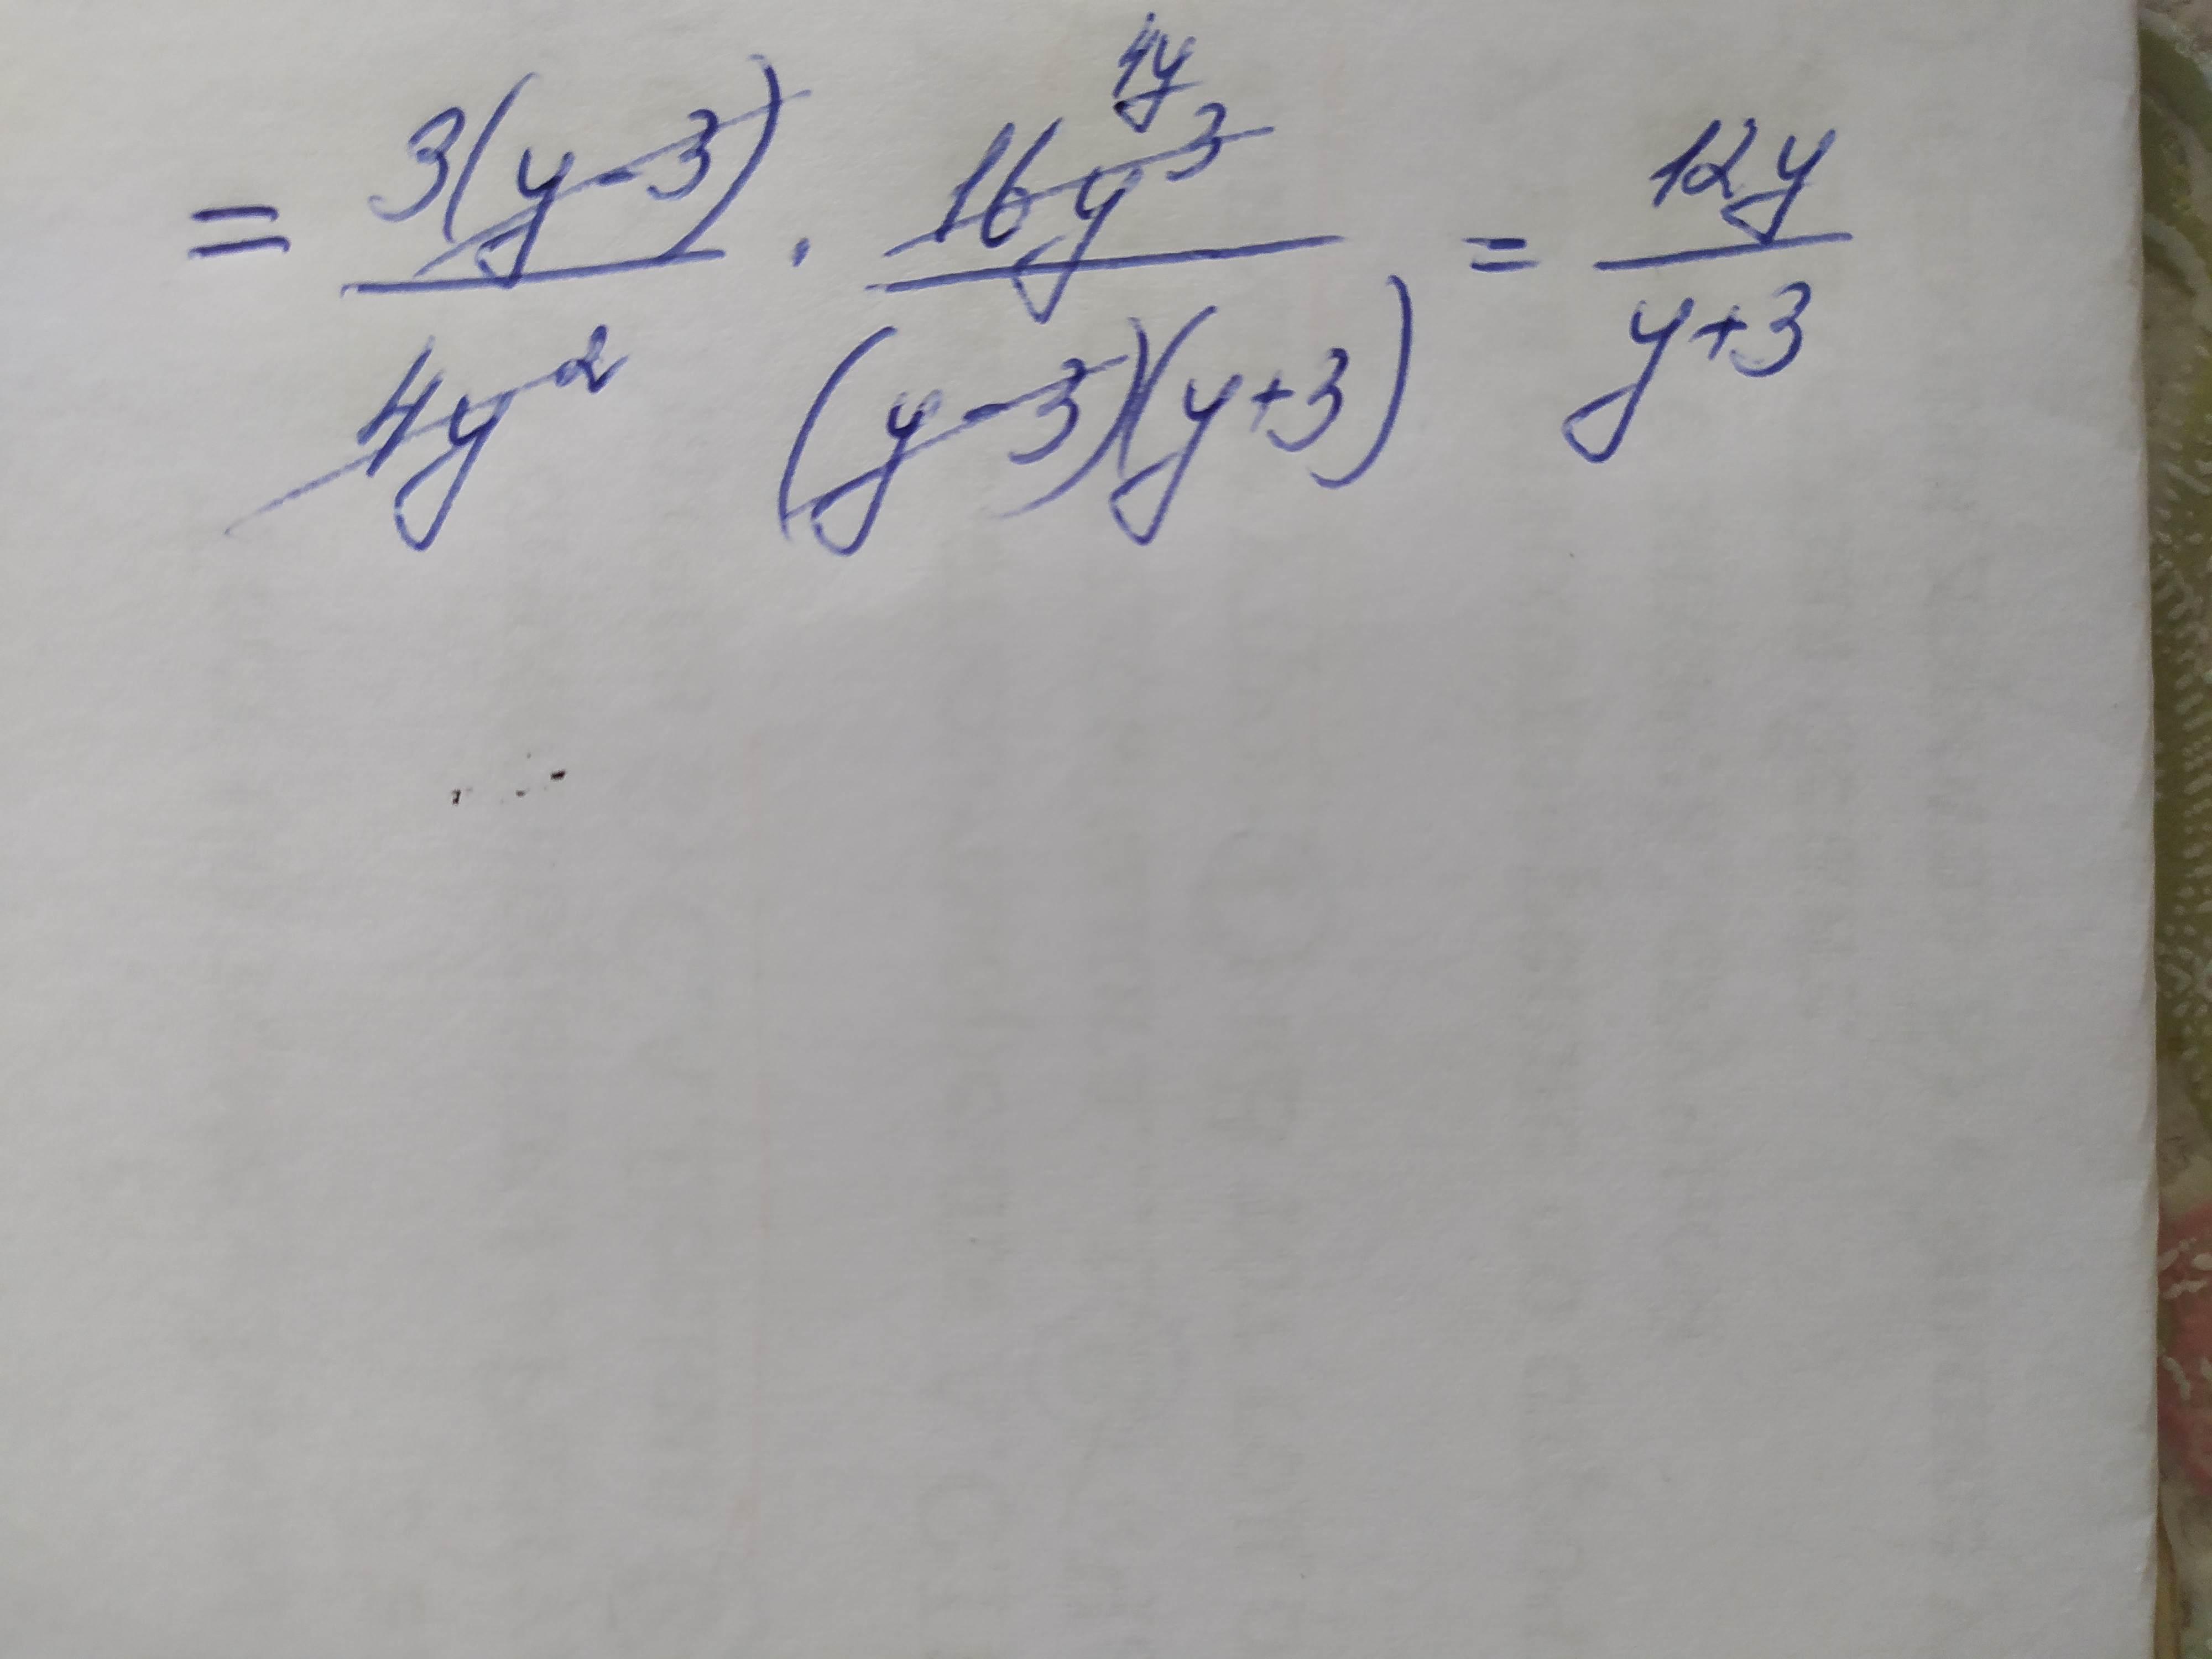 = 3(y-3)/4y² · 16y³/(y-3)(y+3) 4y = 12y/y+3